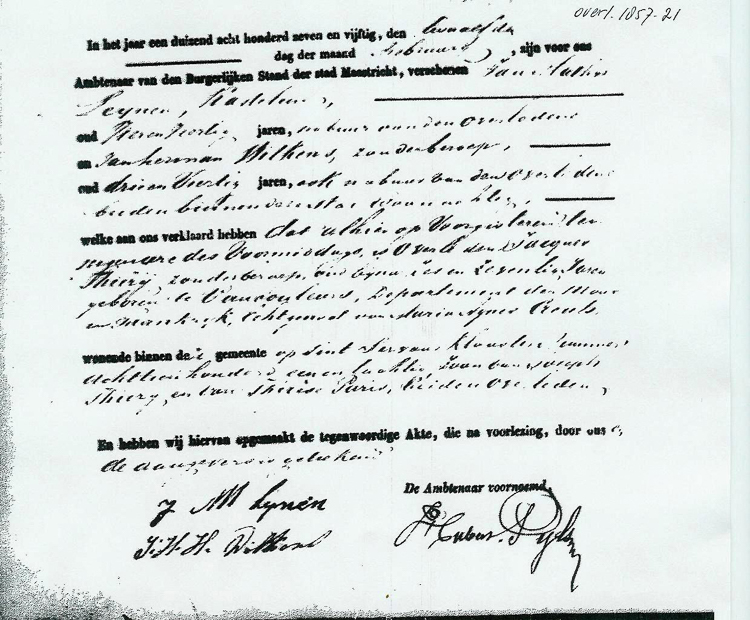 overl. 1857-21
In het jaar een duizend acht honderd zeven en vijftig, den twaalfden
dag der maand February, zijn voor ons
Ambtenaar van den Burgerlijken Stand der stad Maastricht, verschenen Jan
oud jaren, nabuur van den overledene
en Jan herman Wilkens, zonder beroep,
oud drie en Veertig jaren, ook nabuur van den overledene
beiden binnen deze stad
welke aan ons verklaard hebben dat alhier op Voorgisteren ten
negen ure des Voormiddags, is Overleden Jacques
Thiery, zonder beroep, oud byna zes en Zeventig Jaren
geboren te Vaucouleurs, Departement der
en Frankryk, Echtgenoot van Maria Agnes
wonende binnen deze gemeente op Sint Servaas Klooster nummer
achttien honderd een en tachtig, Zoon van Joseph
Thiery en van Thérèse Paris, beiden Overleden,
En hebben wij hiervan opgemaakt de tegenwoordige Akte, die na voorlezing, door ons en
de aangevers is getekend
De Ambtenaar voornoemd,
J M Lynen
J. H. H. Wilkens